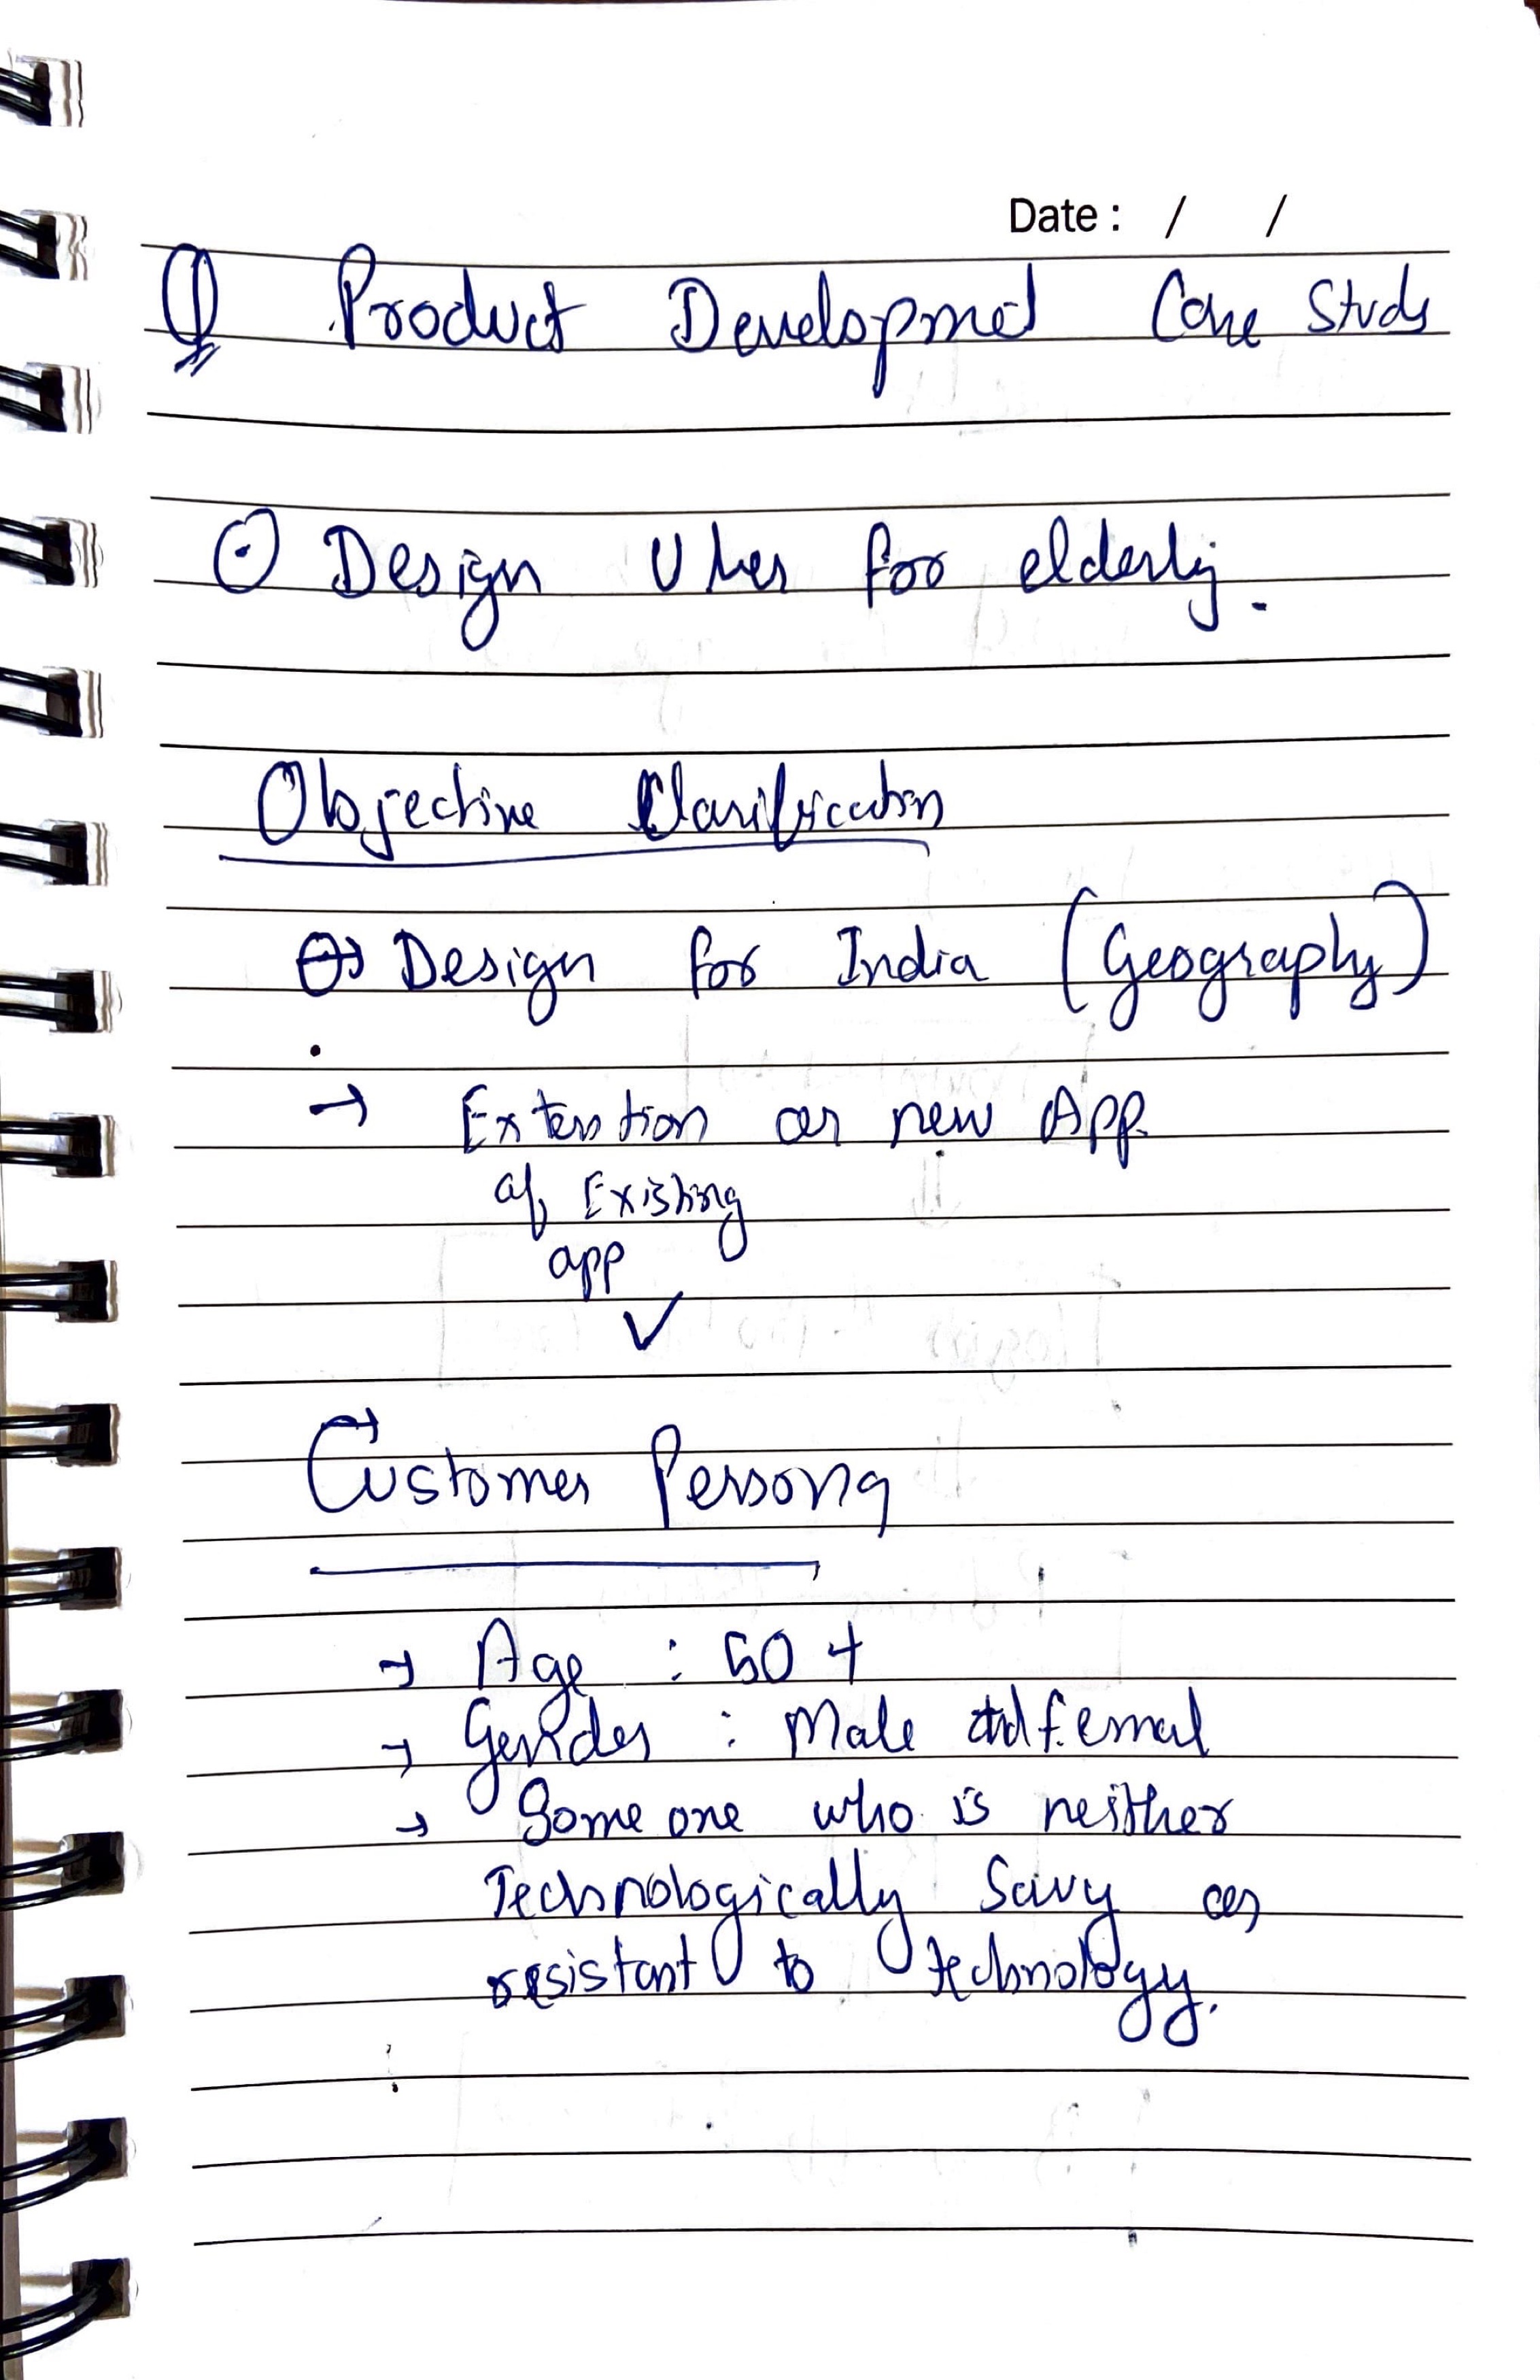 Date : / /
Q Product Developmet Case Study
⊙ Design Uber for elderly.
Objective Clarification
→ Design for India (Geography)
→ Extention or new App.
of Existing
app
✓
Customer Persona
→ Age : 50 +
→ Gender : Male and femal
→ Some one who is neither
Technologically Savvy or
resistant to technology.